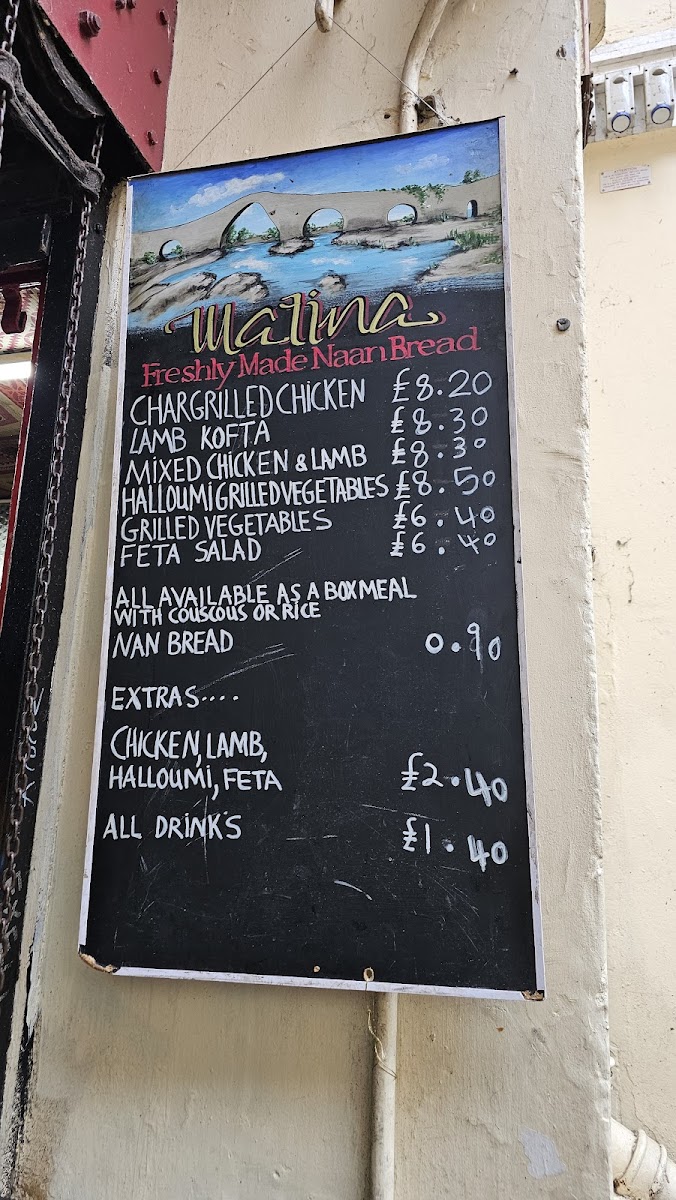 Malina
Freshly Made Naan Bread
CHARGRILLED CHICKEN £8.20
LAMB KOFTA £8.30
MIXED CHICKEN & LAMB £8.30
HALLOUMI GRILLED VEGETABLES £8.50
GRILLED VEGETABLES £6.40
FETA SALAD £6.40
ALL AVAILABLE AS A BOX MEAL
WITH COUSCOUS OR RICE
NAN BREAD 0.90
EXTRAS....
CHICKEN, LAMB,
HALLOUMI, FETA £2.40
ALL DRINKS £1.40